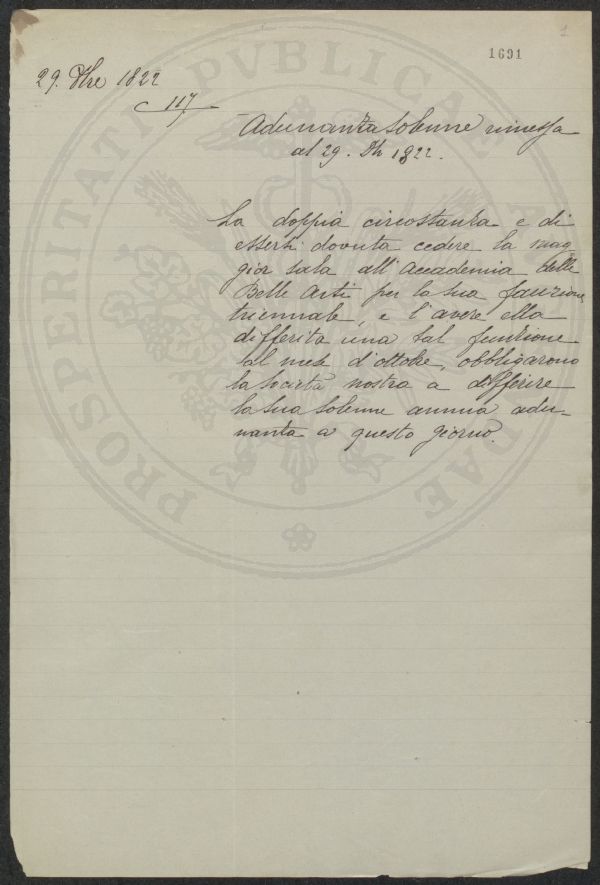 1
1691
29. 9bre 1822
117
Adunanza Solenne rimessa
al 29. 9b 1822.
La doppia circostanza e di
essersi dovuta cedere la mag
gior sala all'Accademia delle
Belle Arti per la sua funzione
triennale, e l'avere ella
differita una tal funzione
al mese d'ottobe, obbligarono
la Società nostra a differire
la sua solenne annua adu-
nanza a questo giorno.
PROSPERITATI PVBLICAE
DAE